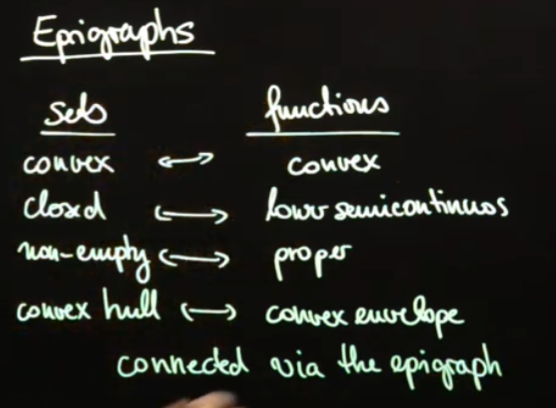 Epigraphs
sets functions
convex ↔ convex
closed ↔ lower semicontinuos
non-empty ↔ proper
convex hull ↔ convex envelope
connected via the epigraph